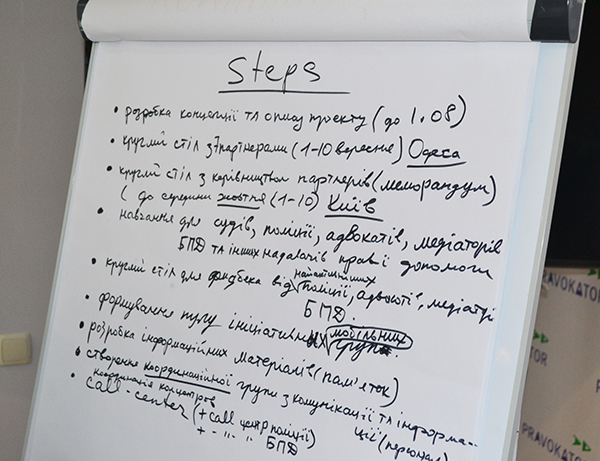 Steps
• розробка концепції та опису проекту (до 1.08)
• круглий стіл з партнерами (1-10 вересня) Одеса
• круглий стіл з керівництвом партнерів (меморандум)
( до середини жовтня (1-10) Київ
• навчання для суддів, поліції, адвокатів, медіаторів
БПД та інших надавачів прав і допомоги
найактивніших
• круглий стіл для фидбека від поліції, адвокатів, медіації
БПД.
• формування пулу ініціативних мобільних
груп
• розробка інформаційних матеріалів (пам'яток)
• створення координаційної групи з комунікації та інформа-
ції (персонал)
координація
• call-center (+ call центр поліції)
+ -"- "- БПД
PRAVOKATOR
PRAVOKATOR